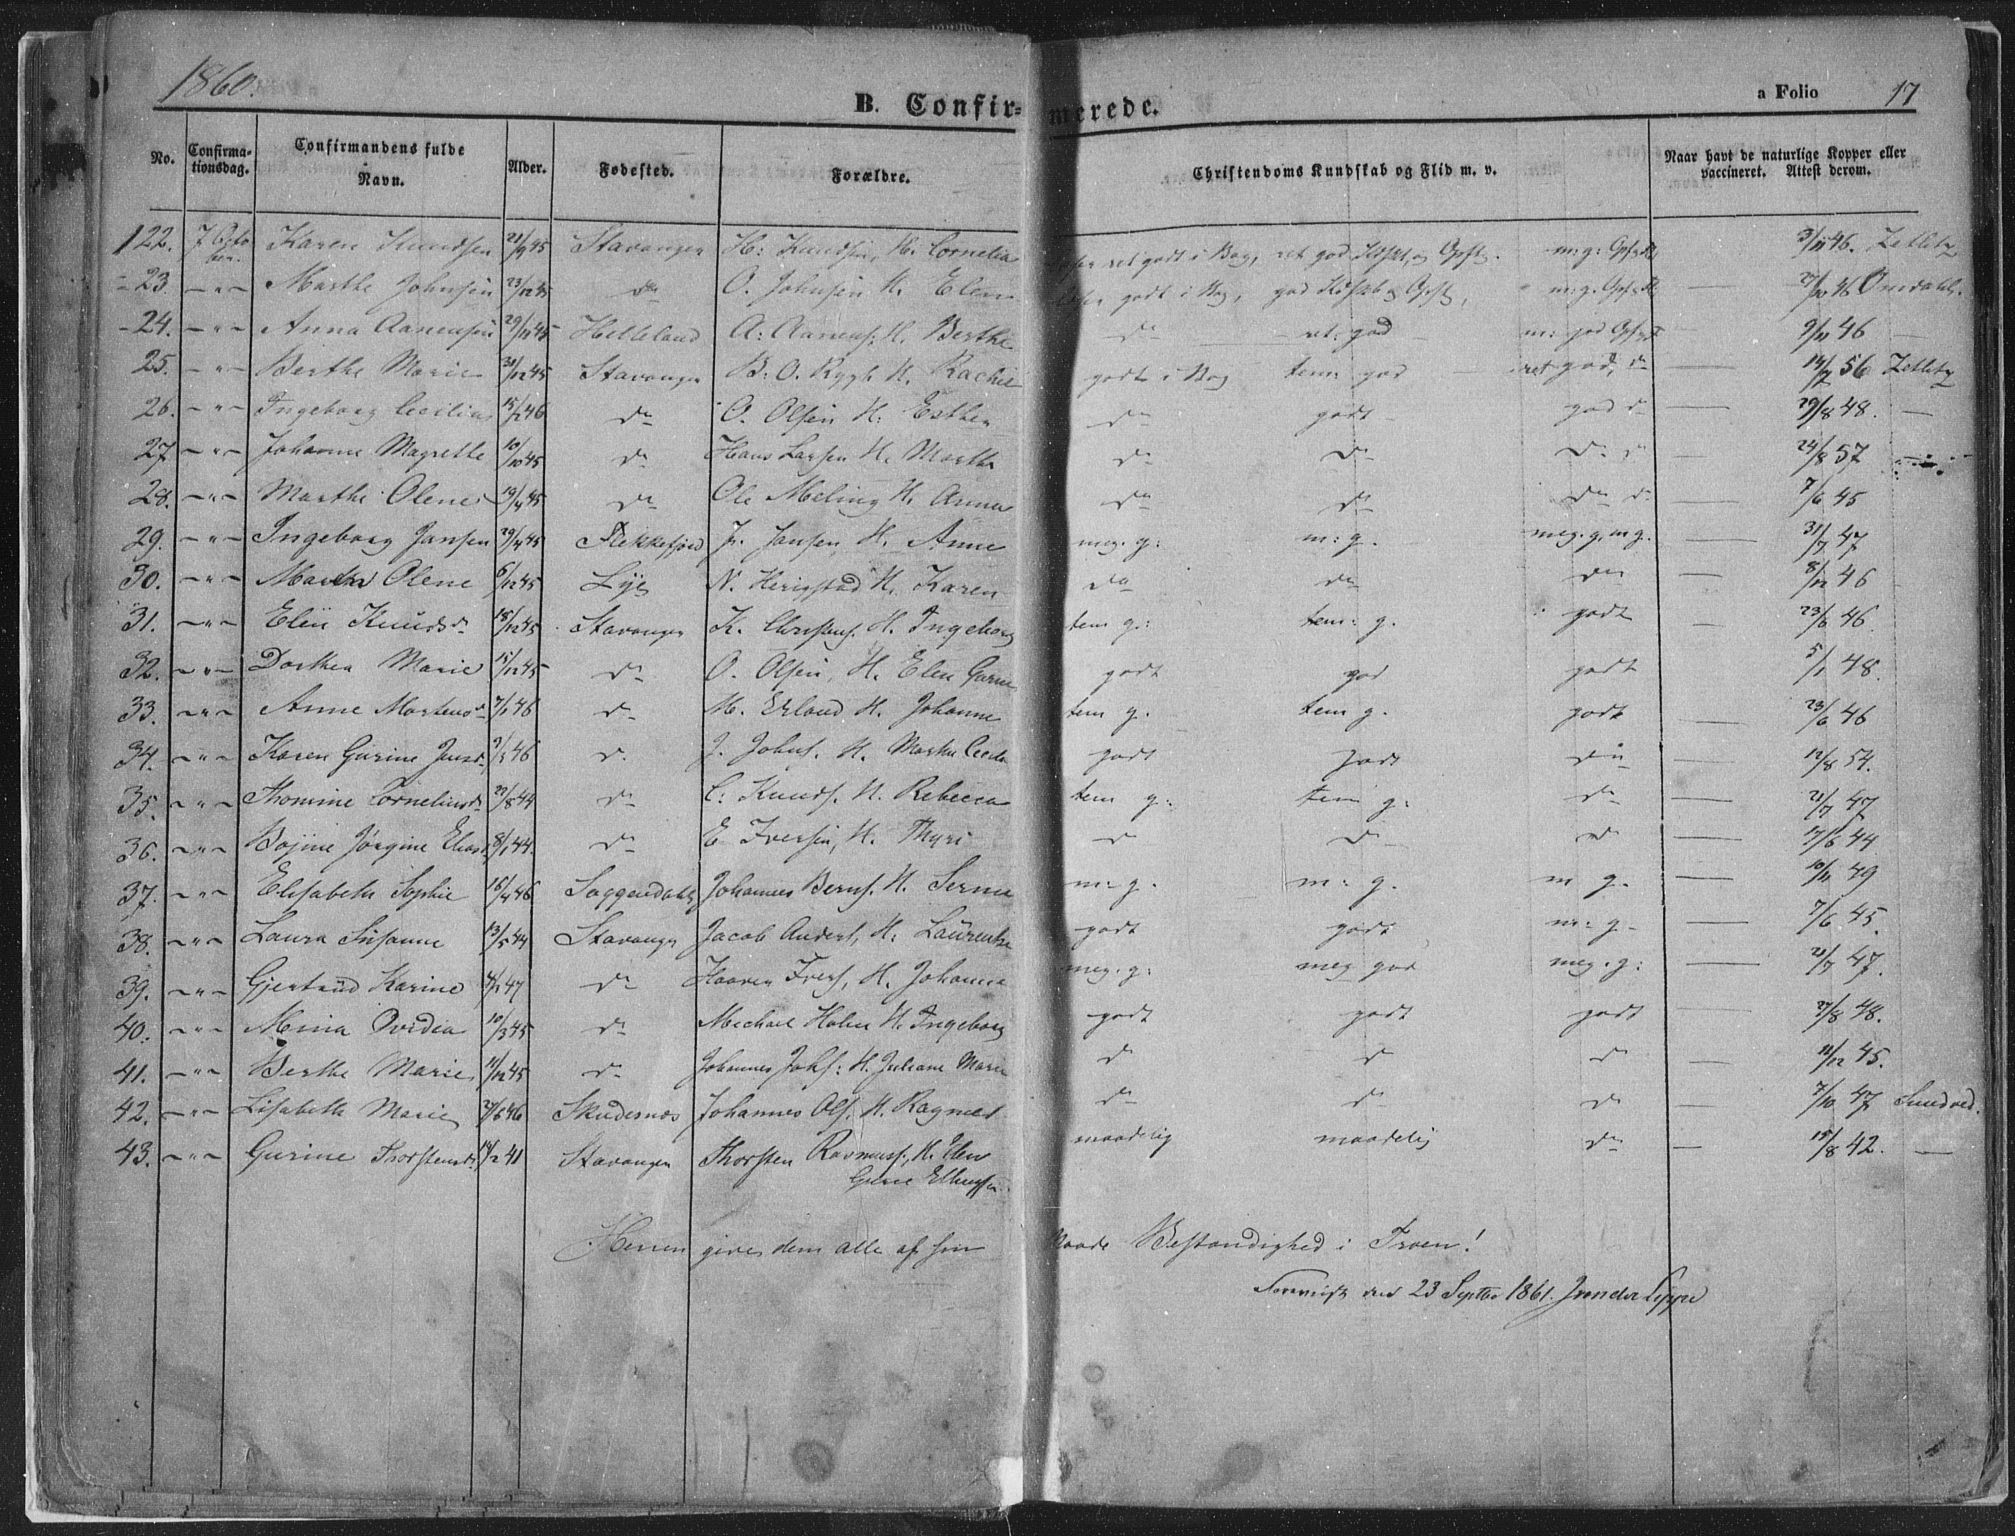 1860.
B. Confirmerede.
a Folio 17
No. Confirmationsdag. Confirmandens fulde Navn. Alder. Fødested. Forældre. Christendoms Kundskab og Flid m. v. Naar havt de naturlige Kopper eller vaccineret. Attest derom.
122. 7 Octoben. Karen Knudsen 21/9 45 Stavanger H: Knudsen, H. Cornelia ret godt i Bog, ret god Kdskb, og Opfs. m: g: Opfs 3/11 46. Zetletz
- 23. - " - Marthe Johnsen 23/12 45 do O. Johnsen H. Elen godt i Bog, god Kdskb & Opfs, " m: g. Opfs — 7/10 46 Omdahl.
- 24. - " - Anna Aanensen 29/11 45 Helleland A: Aanens: H. Berthe do ret: god m: god Opfs — 9/11 46 —
25. - " - Berthe Marie 31/12 45 Stavanger B. O. Rygh H. Rachel godt i Bog tem: god ret god, do — 14/2 56 Zetletz
26. - " - Ingeborg Cecilia 15/2 46 do O. Olsen H: Esther do godt god do — 29/8 48. —
27. - " - Johanne Magrethe 10/10 45 do Hans Larsen H. Marthe do do do do — 24/8 57
28. - " - Marthe Olene 19/4 45 do Ole Meling H. Anna do do do do — 7/6 45
29. - " - Ingeborg Jansen 29/4 45 Flekkefjord J. Jansen H. Anne meg. g: m: g. meg. g. m g. — 31/7 47
30. - " - Olene 6/12 45 Lye N. Herigstad H. Karen do do do — 8/12 46
31. - " - Elen Knudsd. 18/12 45 Stavanger K. Christens. H. Ingeborg tem g: tem: g. godt — 23/6 46
32. - " - Dorthea Marie 15/12 45 do O. Olsen, H. Elen Gurine godt god godt 5/1 48.
33. - " - Anne Martensd. 7/1 46 do M. Erland H. Johanne tem g. tem g. godt — 23/6 46
34. - " - Karen Gurine Jansd. 9/1 46 do J. Johns. H. Marthe Cecilia godt godt do — 12/8 54.
35. - " - Thomine Corneliusd. 29/8 44 do C: Knuds. H. Rebecca tem g: tem g: do — 21/7 47
36. - " - Bojine Jørgine Eliasd. 8/1 44. do E Iversen, H. Thyri do do do — 17/6 44
37. - " - Elisabeth Sophie 16/4 46 Soggendahl Johannes Berns. H. Serina m: g. m: g. m g. — 10/11 49
38. - " - Laura Susanne 13/5 44 Stavanger Jacob Anders, H: Laurentze godt godt m: g. — 7/6 45.
39. - " - Gjertrud Karine 4/1 47 do Haaver Ivers, H. Johanna meg. g: meg god meg. g: — 21/7 47.
40. - " - Mina Ovidia 10/3 45 do Michael Holm H. Ingeborg godt godt godt — 27/8 48.
41. - " - Berthe Marie 11/12 45 do Johannes Johs: H. Juliane Marie do do do — 11/12 45.
42. - " - Lisabeth Marie 27/6 46 Skudesnæs Johannes Ols. H. Ragnild do do do — 7/10 47 Smedved.
43. - " - Gurine Thorstensd. 14/2 41 Stavanger Thorsten Rasmuss., H. Elen maadelig maadelig do — 15/8 42. —
Gurine
Herren give dem alle af sin Naade Bestandighed i Troen!
Foreviist den 23 Septbr 1861. J von der Lippe